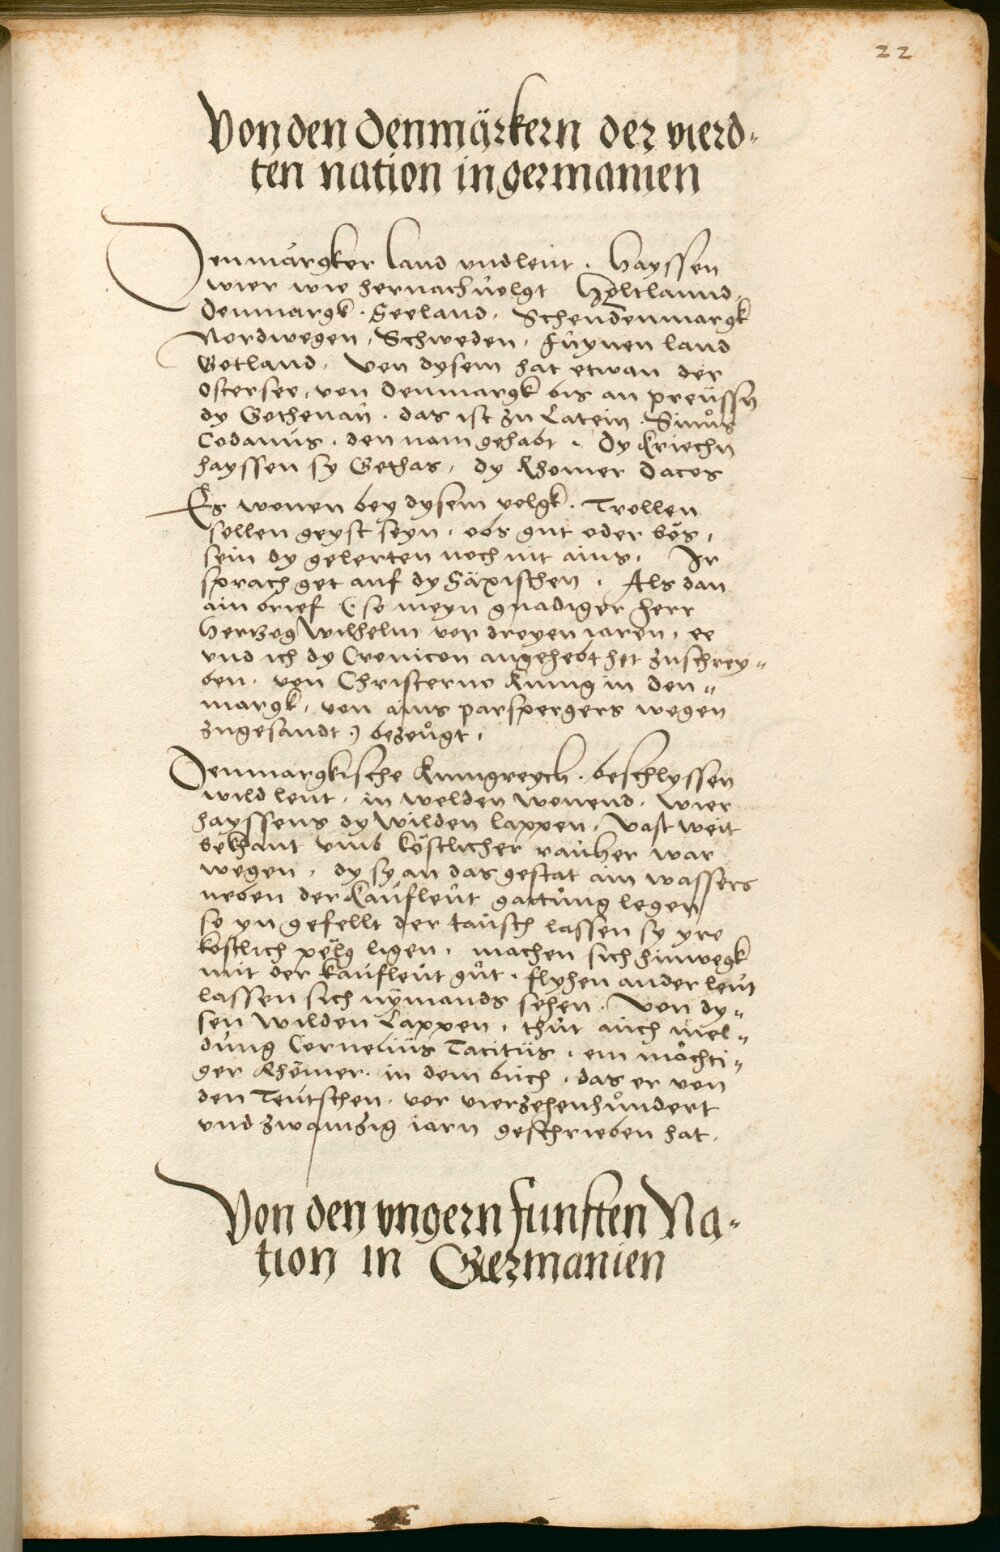 22
Von den Denmärkern der vierd-
ten nation in germanien
Denmärgker land vnd leüt . Hayssen
wier wie hernach uolgt Holtlannd,
Denmargk . Seeland . Schendenmargk
Nordwegen , Schweden . Fuynen land
Gotland . Von dysem hat etwan der
Ostersee , von Denmargk bis an preüssn
dy Gothenaü . das ist zu Latein . Sinus
Codanus . den nam gehabt . Dy Kriechn
hayssen sy Gethas , dy Rhomer Daces
Es wonen bey dysem volgk . Trollen
sollen geyst seyn , obs gut oder bös ,
sein dy gelerten noch nit ains . Ir
sprach get auf dy Säxischen . Als dan
ain brief (: so meyn gnadiger herr
Hertzog Wilhelm vor dreyen iaren , ee
vnd ich dy Cronicon angehebt het zuschrey„
ben . von Christerno Kunig in den„
margk , von ains parspergers wegen
zugesandt :) bezeugt .
Denmargkische Kunigreych . beschlyssen
wild leüt . in welden wonend . wier
hayssens dy wilden lappen , Vast weit
bekhant vmb köstlicher rauher war
wegen , dy sy an das gestat ain wassers
neben der kaufleüt gattung legen
so yn gefellt der tausch lassen sy yre
kostlich pelg ligen . machen sich hinwegk
mit der kaufleüt gut . flyhen ander leüt
lassen sich nymands sehen . Von dy„
sen wilden Lappen , thut auch mel„
dung Cornelius Tacitus . ein mächti„
ger Rhömer . in dem buch . das er von
den Teütschen . vor vierzehenhundert
vnd zwainzig iarn geschrieben hat .
Von den vngern funften Na-
tion in Germanien